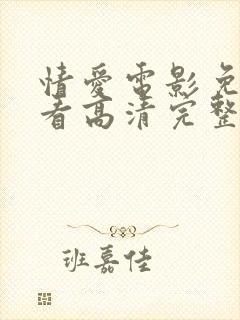 情爱电影免
看高清完整
班嘉佳